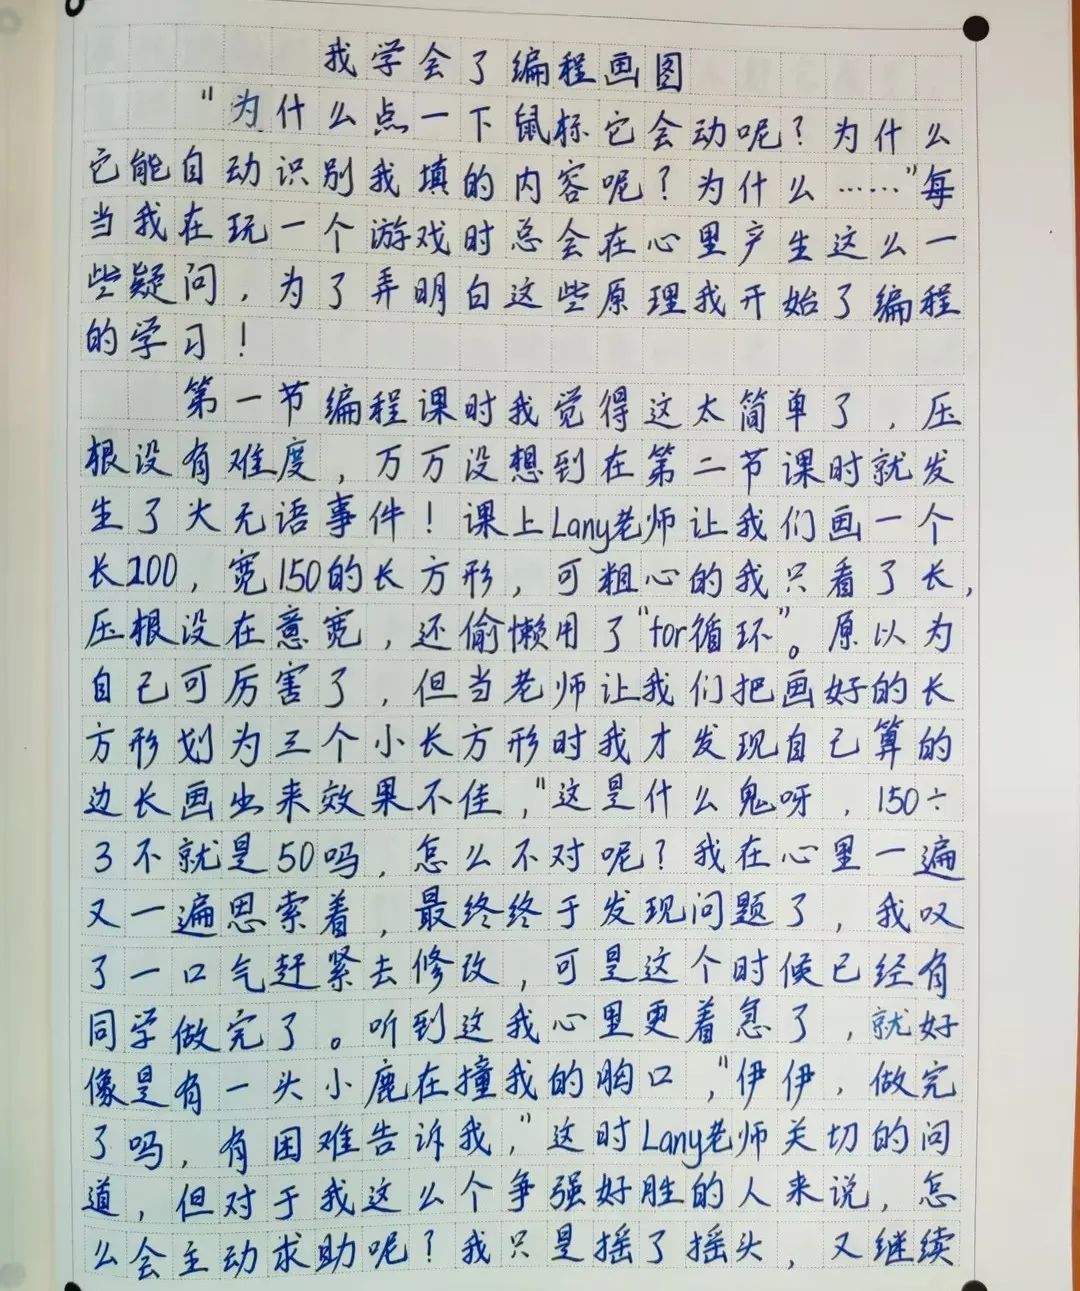 我学会了编程画图
"为什么点一下鼠标它会动呢？为什么
它能自动识别我填的内容呢？为什么……"每
当我在玩一个游戏时总会在心里产生这么一
些疑问，为了弄明白这些原理我开始了编程
的学习！
第一节编程课时我觉得这太简单了，压
根没有难度，万万没想到在第二节课时就发
生了大无语事件！课上Lany老师让我们画一个
长200，宽150的长方形，可粗心的我只看了长，
压根没在意宽，还偷懒用了"for循环"。原以为
自己可厉害了，但当老师让我们把画好的长
方形划为三个小长方形时我才发现自己算的
边长画出来效果不佳，"这是什么鬼呀，150÷
3不就是50吗，怎么不对呢？我在心里一遍
又一遍思索着，最终终于发现问题了，我叹
了一口气赶紧去修改，可是这个时候已经有
同学做完了。听到这我心里更着急了，就好
像是有一头小鹿在撞我的胸口，"伊伊，做完
了吗，有困难告诉我，"这时Lany老师关切的问
道，但对于我这么个争强好胜的人来说，怎
么会主动求助呢？我只是摇了摇头，又继续